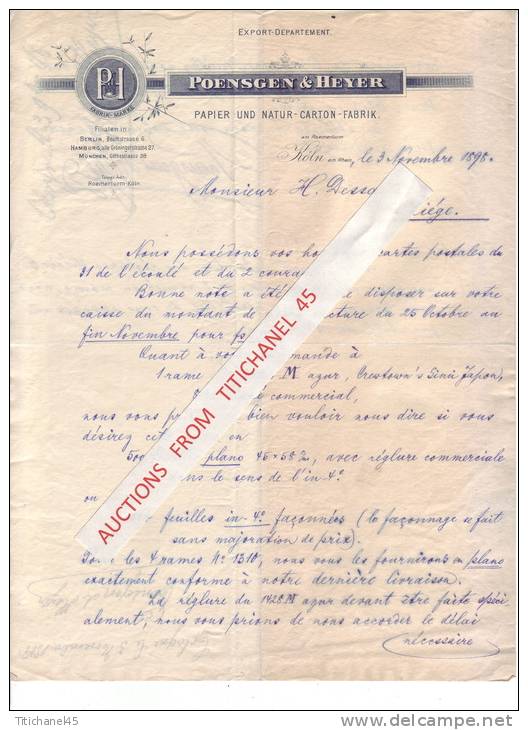 EXPORT-DEPARTEMENT.
PH
FABRIK-MARKE
POENSGEN & HEYER
PAPIER UND NATUR-CARTON-FABRIK.
Filialen in
BERLIN, Beuthstrasse 6
HAMBURG, alte Gröningerstrasse 27,
MÜNCHEN, Göthestrasse 38
Telegr. Adr.
Roemerturm-Köln.
am Roemerturm
Köln am Rhein, le 3 Novembre 1898.
Monsieur H. Dess
iége.
Nous possédons vos ho cartes postales du
31 de l'écoulé et du 2 coura
Bonne note a été e disposer sur votre
caisse du montant de cture du 25 Octobre au
fin Novembre pour fs
Quant à vo mande à
1 rame M azur, Crestown's Linn Japon,
e commercial,
nous vous p bien vouloir nous dire si vous
désirez cet en
500 plano 45 × 58 %, avec réglure commerciale
ns le sens de l'in-4°
ou
feuilles in-4° façonnées (le façonnage se fait
sans majoration de prix).
les 4 rames N° 1310, nous vous les fournirons en plano
exactement conforme à notre dernière livraison.
La réglure du 1428 M azur devant être faite spéci
alement, nous vous prions de nous accorder le délai
nécessaire
AUCTIONS FROM TITICHANEL 45
Titichane45
www.delcampe.net